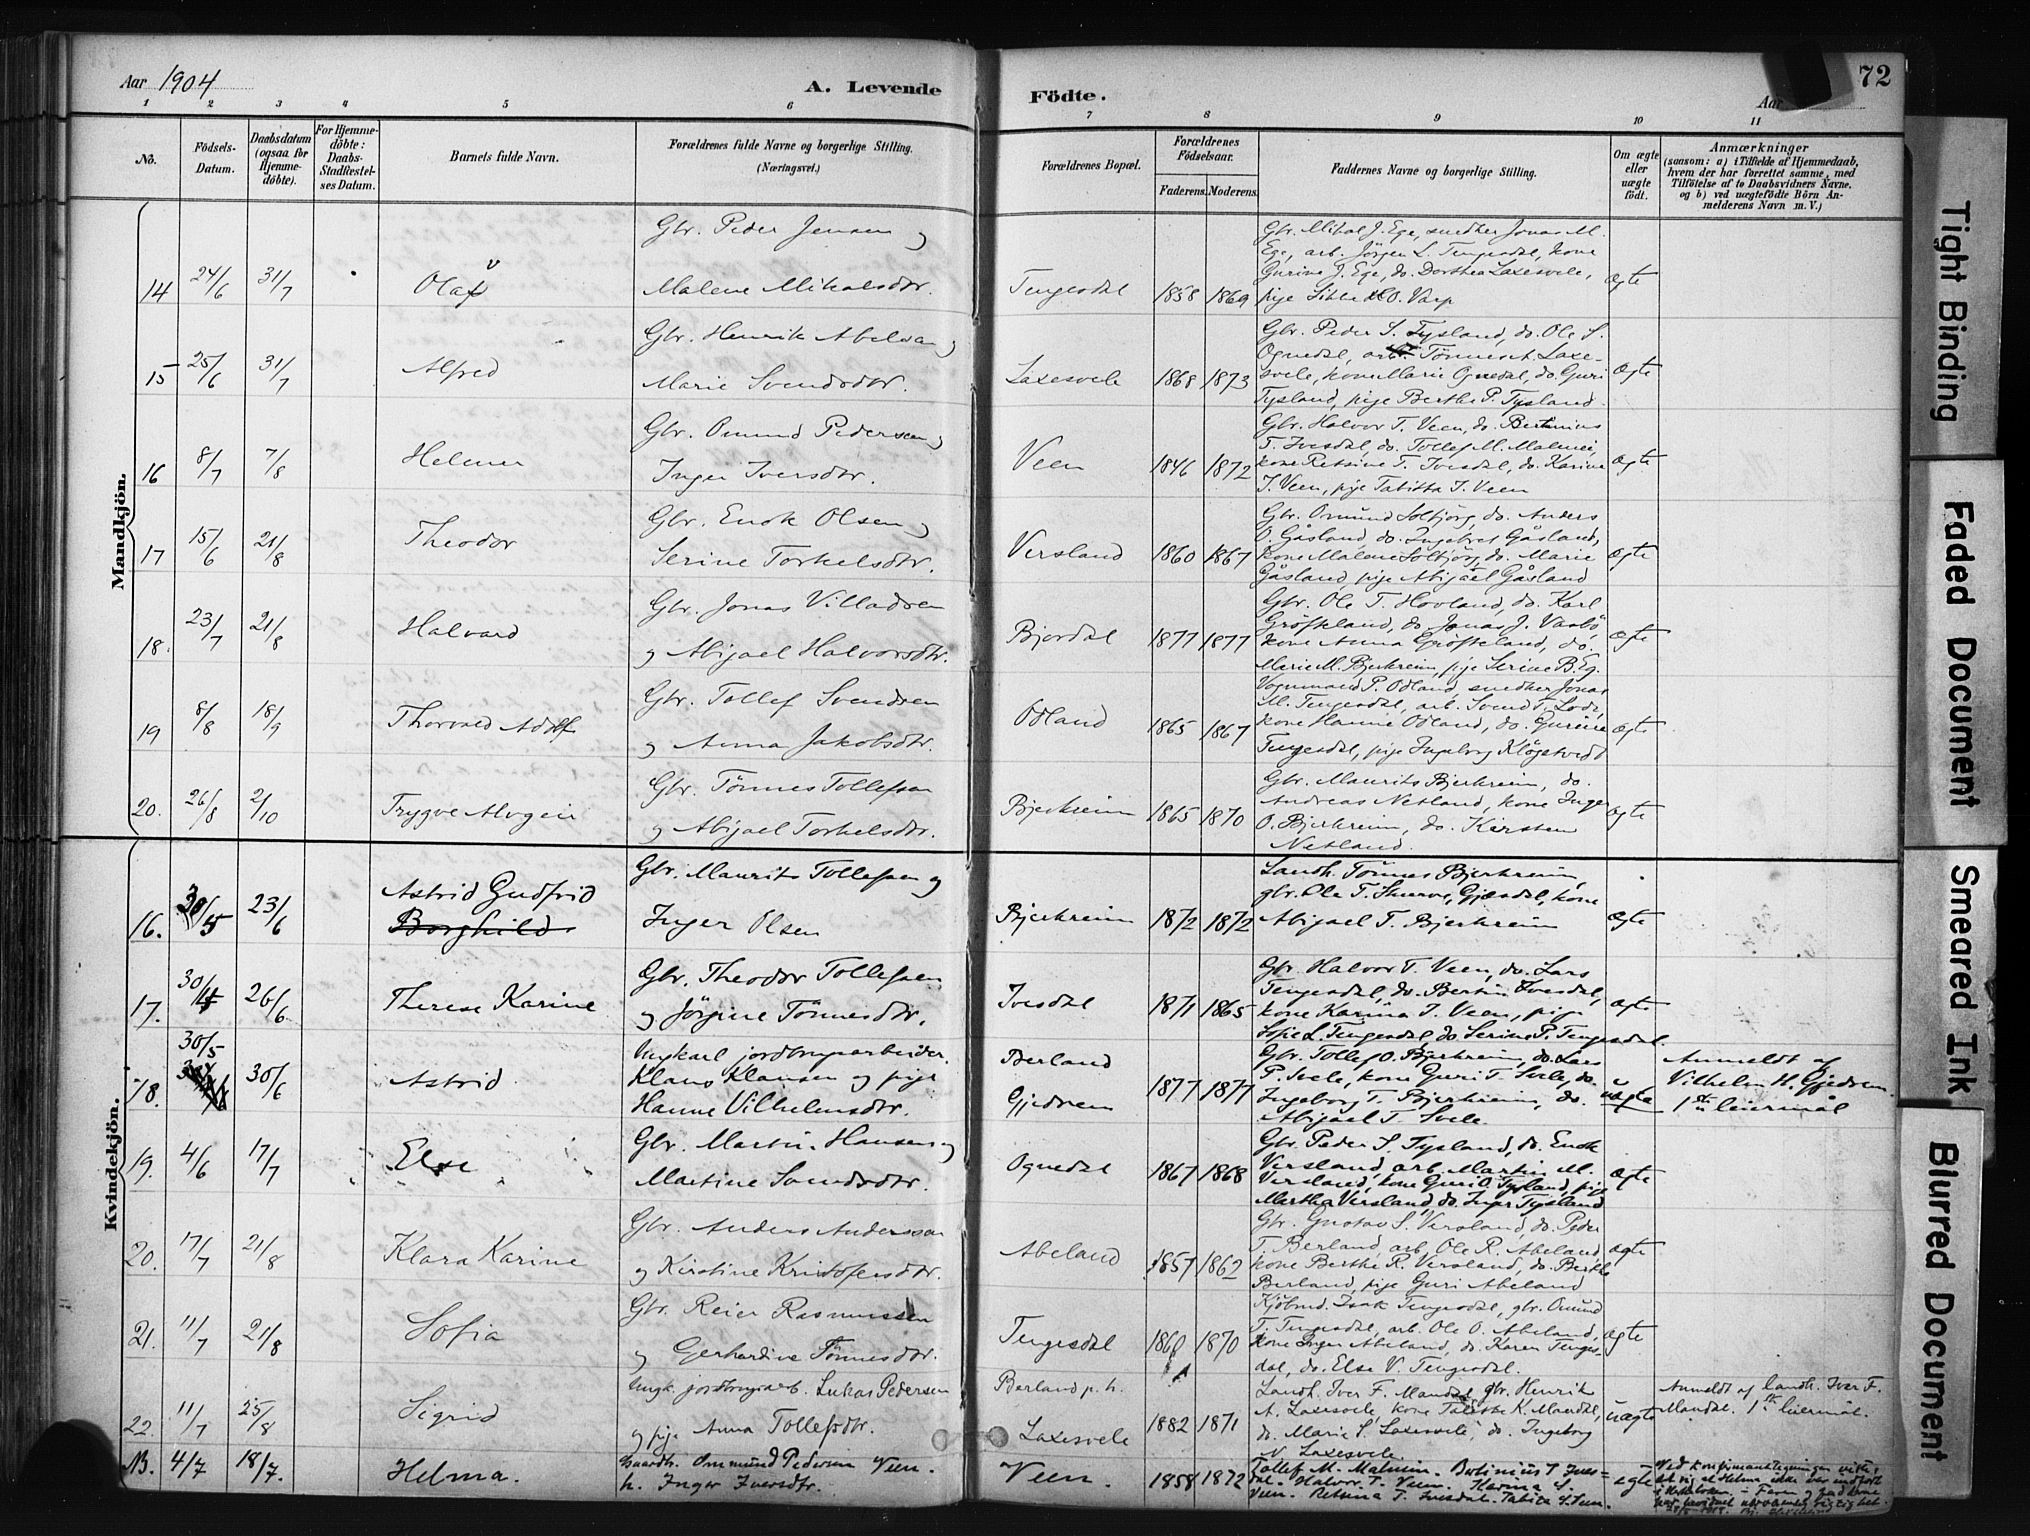 Aar 1904
A. Levende
Födte.
Aar
72
1 2 3 4 5 6 7 8 9 10 11
No.
Födsels-Datum.
Daabsdatum (ogsaa for Hjemme-döbte).
For Hjemme-döbte: Daabs-Stadfestel-ses Datum.
Barnets fulde Navn.
Forældrenes fulde Navne og borgerlige Stilling.
(Næringsvei.)
Forældrenes Bopæl.
Forældrenes Födselsaar.
Faderens. Moderens.
Faddernes Navne og borgerlige Stilling.
Om ægte eller uægte födt.
Anmærkninger
(saasom: a) i Tilfælde af Hjemmedaab,
hvem der har forrettet samme, med
Tilföielse af to Daabsvidners Navne,
og b) ved uægtefödte Börn An-
melderens Navn m. V.)
Mandkjön.
14 24/6 31/7 Olaf
Gbr. Peder Jensen og
Malene Mikalsdtr.
Tengesdal 1858 1869
Gbr. Mikal J. Ege, smedker Jonas M.
Ege, arb. Jörgen L. Tengesdal, kone
Gurine J. Ege, do. Dorthea Laxesvele,
pige O. Varp
ægte
15 25/6 31/7 Alfred
Gbr. Henrik Abelsen og
Marie Svendsdtr.
Laxesvele 1868 1873
Gbr. Peder S. Tysland, do. Ole S.
Ognedal, arb. Tönnes Laxe-
svele, kone Marie Ognedal, do. Guri
Tysland, pige Berthe P. Tysland
ægte
16 8/7 7/8 Helmer
Gbr. Omund Pedersen og
Inger Iversdtr.
Veen 1846 1872
Gbr. Halvor T. Veen, do. Bertinius
T. Ivesdal, do. Tollef M. Malmei,
kone Retsine T. Ivesdal, do. Karine
I. Veen, pige Tabitta I. Veen
ægte
17 15/6 21/8 Theodor
Gbr. Enok Olsen og
Serine Torkelsdtr.
Versland 1860 1867
Gbr. Omund Solbjörg, do. Anders
O. Gåsland, do. Ingebret Gåsland,
kone Malene Solbjörg, do. Marie
Gåsland, pige Abigael Gåsland
ægte
18. 23/7 21/8 Halvard
Gbr. Jonas Villadsen
og Abigael Halvorsdtr.
Bjordal 1877 1877
Gbr. Ole T. Hovland, do. Karl
Gröfsland, do. Jonas J. Vasbö,
kone Anna Gröfseland, do.
Marie M. Bjerkreim, pige Serine B. Eg.
ægte
19 8/8 18/9 Thorvald Adolf
Gbr. Tollef Svendsen
og Anna Jakobsdtr.
Odland 1865 1867
Vognmand P. Odland, smedker Jonas
M. Tengesdal, arb. Svend T. Lode,
kone Hanne Odland, do. Gurine
Tengesdal, pige Ingeborg Klögetvedt
ægte
20. 26/8 2/10 Trygve Alvgeir
Gbr. Tönnes Tollefsen
og Abigael Torkelsdtr.
Bjerkreim 1865 1870
Gbr. Maurits Bjerkreim, do.
Andreas Netland, kone Inger
O. Bjerkreim, do. Kirsten
Netland.
ægte
Kvindekjön.
16. 30/5 23/6 Astrid Gudfrid
Borghild
Gbr. Maurits Tollefsen og
Inger Olsen
Bjerkreim 1872 1872
Landh. Tönnes Bjerkreim,
gbr. Ole T. Skurve, Gjesdal, kone
Abigael T. Bjerkreim
ægte
17. 30/4 26/6 Therese Karine
Gbr. Theodor Tollefsen
og Jörgine Tönnesdtr.
Ivesdal 1871 1865
Gbr. Halvor T. Veen, do. Lars
Tengesdal, do. Bertin Ivesdal,
kone Karina I. Veen, pige
Sofie L. Tengesdal, do. Serine P. Tengesdal.
ægte
18. 30/5 30/6 Astrid
Ungkarl jordbrugsarbeider
Klaus Klausen og pige
Hanne Vilhelmsdtr.
Berland
Gjedrem
1877 1877
Gbr. Tollef O. Bjerkreim, do. Lars
P. Svele, kone Guri T. Svele, do.
Ingeborg T. Bjerkreim, do.
Abigael T. Svele
uægte
Anmeldt af
Vilhelm H. Gjedrem.
1ste leiermål
19. 4/6 17/7 Else
Gbr. Martin Hansen og
Martine Svendsdtr.
Ognedal 1867 1868
Gbr. Peder S. Tysland, do. Enok
Versland, arb. Martin M.
Versland, kone Guri O. Tysland, pige
Martha Versland, do. Inger Tysland
ægte
20. 17/7 21/8 Klara Karine
Gbr. Anders Andersen
og Kirstine Kristofersdtr.
Abeland 1857 1862
Gbr. Gustav S. Versland, do. Peder
T. Berland, arb. Ole R. Abeland,
kone Berthe R. Versland, do. Berthe
Berland, pige Guri Abeland
ægte
21. 11/7 21/8 Sofia
Gbr. Reier Rasmussen
og Gerhardine Tönnesdtr.
Tengesdal 1860 1870
Kjöbmd. Isak Tengesdal, gbr. Omund
T. Tengesdal, arb. Ole O. Abeland,
kone Inger Abeland, do. Karen Tenges-
dal, do. Else V. Tengesdal.
ægte
22. 11/7 25/8 Sigrid
Ungk. jordbrugsarb. Lukas Pedersen
og pige Anna Tollefsdtr.
Berland p. h.
Laxesvele
1882 1871
Landh. Iver F. Mandal, gbr. Henrik
A. Laxesvele, kone Tabitha K. Mandal,
do. Marie S. Laxesvele, do. Ingeborg
N. Laxesvele
uægte
Anmeldt af landh. Iver F.
Mandal. 1ste leiermål.
B. 4/7 18/7. Helma.
Gaardbr. Ommund Pedersen Veen.
h. Inger Iversdtr.
Veen. 1858 1872
Tollef M. Malmein. Bertinius T. Ives-
dal. Halvor T. Veen. Karina I.
Veen. Retsina T. Ivesdal. Tabita I. Veen.
ægte
Ved konfirmantlegningen viste
det sig at Helma ikke var indført
i kirkeboken. - Faren og fadderne
har bevidnet
Tight Binding
Faded Document
Smeared Ink
Blurred Document